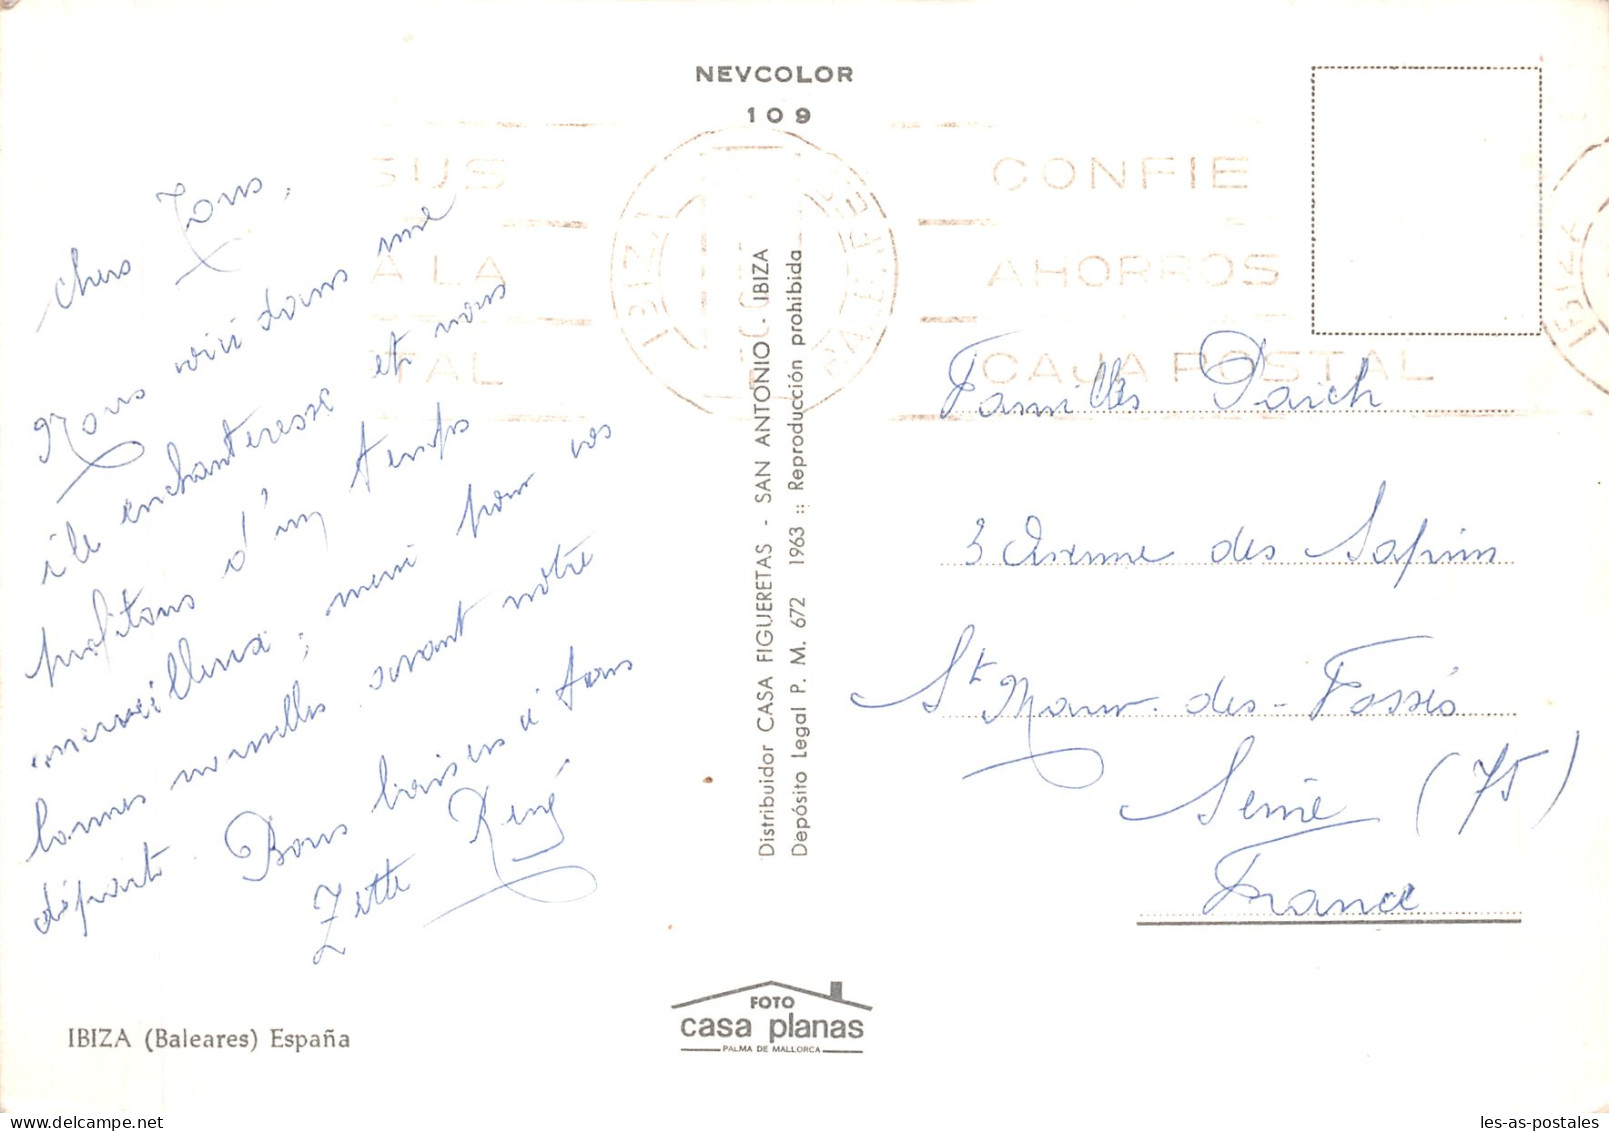 NEVCOLOR
109
SUS
A LA
TAL
IBIZA
CONFIE
AHORROS
CAJA POSTAL
IBIZA
chers Tous,
Nous voici dans une
île enchanteresse et nous
profitons d'un temps
merveilleux, merci pour vos
bonnes nouvelles avant notre
départ. Bons baisers à tous
Zette René
Distribuidor CASA FIGUERETAS - SAN ANTONIO - IBIZA
Depósito Legal P. M. 672 1963 :: Reproducción prohibida
Familles Paich
3 Avenue des Sapins
St Maur-des-Fossés
Seine (75)
France
IBIZA (Baleares) España
FOTO
casa planas
PALMA DE MALLORCA
les-as-postales